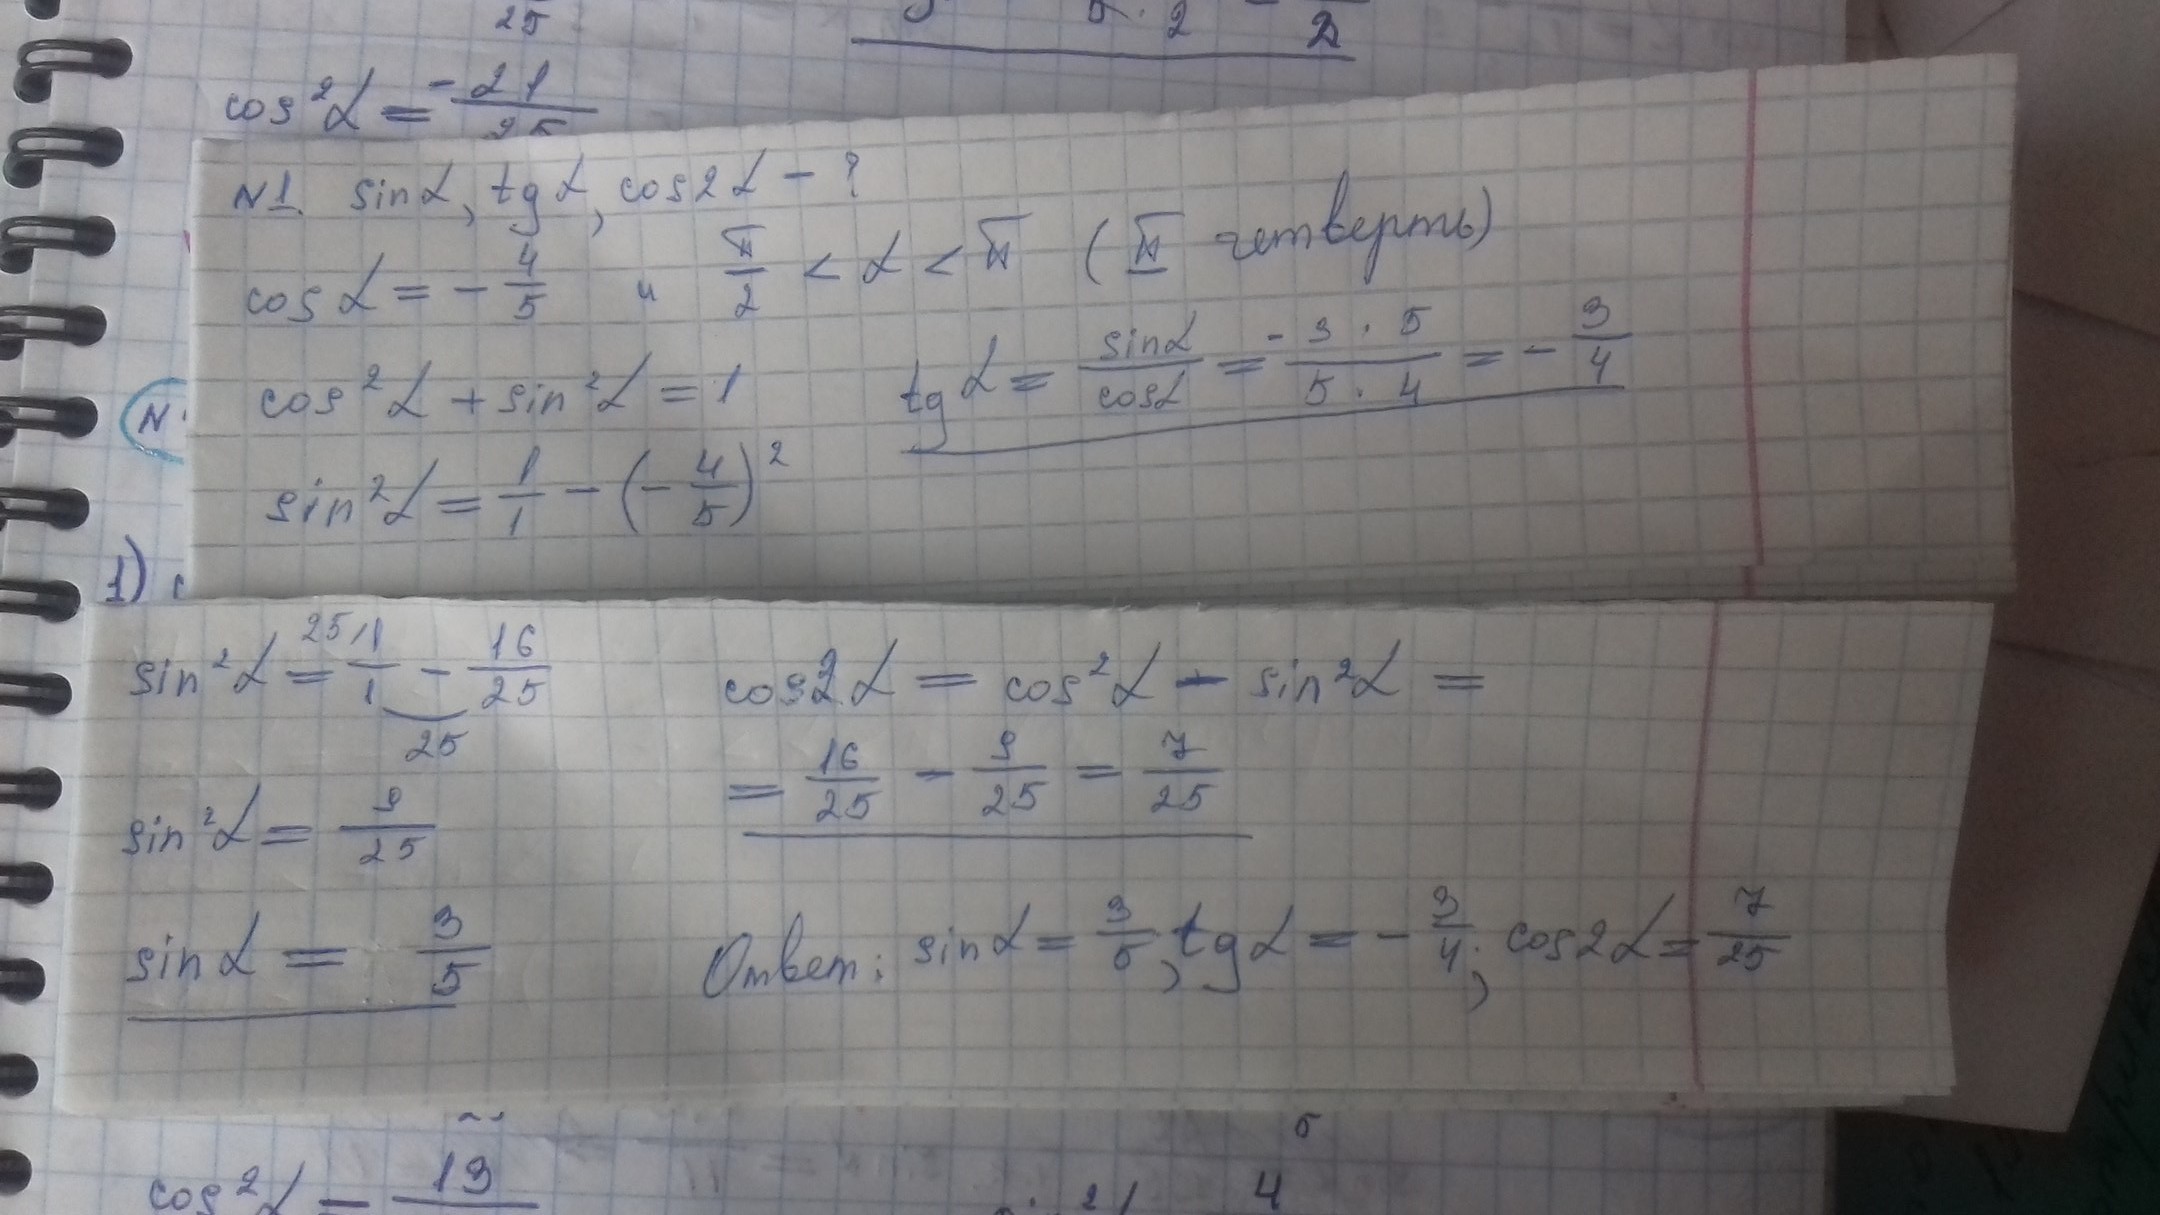 25
5 · 2
2
cos²α = -21/25
N1. sinα, tgα, cos2α - ?
cosα = - 4/5 и π/2 < α < π (II четверть)
cos²α + sin²α = 1
tgα = sinα/cosα = - 3 · 5/5 · 4 = - 3/4
sin²α = 1/1 - (- 4/5)²
N
1)
sin²α = 25/1/1 - 16/25
25
sin²α = 9/25
sinα = 3/5
cos2α = cos²α - sin²α =
= 16/25 - 9/25 = 7/25
Ответ: sinα = 3/5, tgα = - 3/4; cos2α = 7/25
cos²α = 13
4